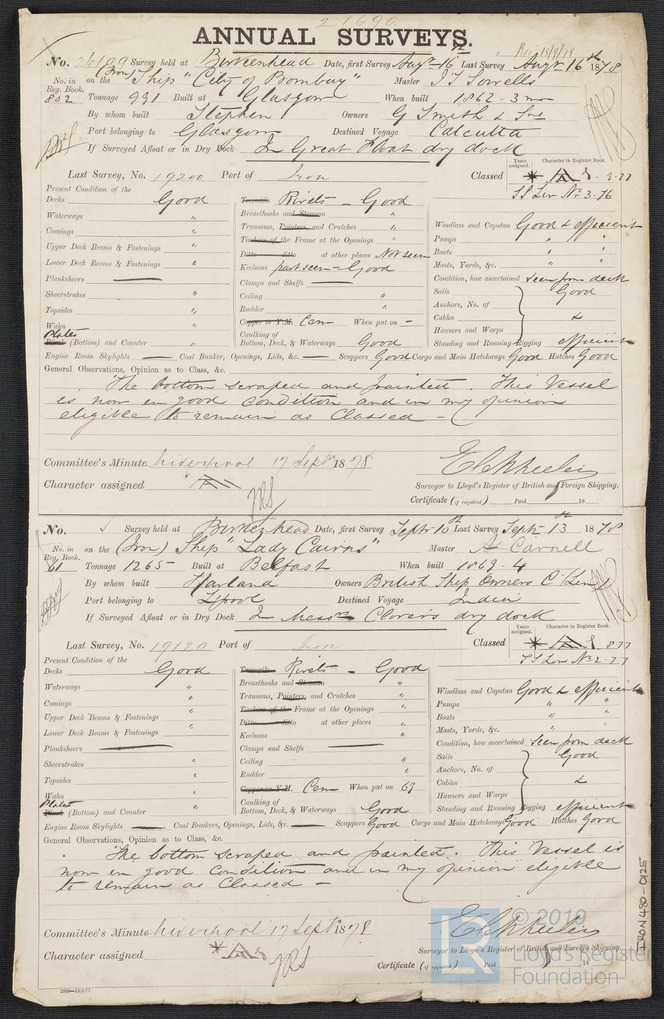 2 1690
ANNUAL SURVEYS.
Rec 18/9/78
No. 26199 Survey held at Birkenhead Date, first Survey Augt 16th Last Survey Augt 16th 1878
No. in Reg. Book. 802 on the (Iron) Ship "City of Bombay" Master J T Sowells
Tonnage 991 Built at Glasgow When built 1862 - 3 mo
By whom built Stephen Owners G Smith & Sns
Port belonging to Glasgow Destined Voyage Calcutta
If Surveyed Afloat or in Dry Dock In Great Float dry dock
Years assigned. Character in Register Book.
Last Survey, No. 19200 Port of Iron Classed A 3-77
SS Liv No 3-76
Present Condition of the
Decks Good
Waterways "
Comings "
Upper Deck Beams & Fastenings "
Lower Deck Beams & Fastenings "
Planksheers
Sheerstrakes "
Topsides "
Wales "
Plates (Bottom) and Counter "
Treenails Rivets - Good
Breasthooks and Stemson "
Transoms, Pointers, and Crutches "
Timbers of the Frame at the Openings "
Ditto ditto at other places Not seen
Keelsons part seen - Good
Clamps and Shelfs
Ceiling "
Rudder "
Copper or Y.M. Cem When put on -
Caulking of Bottom, Deck, & Waterways Good
Windlass and Capstan Good & efficient
Pumps " "
Boats " "
Masts, Yards, &c. " "
Condition, how ascertained seen from deck
Sails Good
Anchors, No. of
Cables &
Hawsers and Warps
Standing and Running Rigging efficient
Engine Room Skylights Coal Bunker, Openings, Lids, &c. Scuppers Good Cargo and Main Hatchways Good Hatches Good
General Observations, Opinion as to Class, &c.
The bottom scraped and painted. This Vessel
is now in good condition and in my opinion
eligible to remain as Classed -
Committee's Minute Liverpool 17 Septr 1878
Character assigned A
Surveyor to Lloyd's Register of British and Foreign Shipping.
Certificate (if required) Paid 18
No. Survey held at Birkenhead Date, first Survey Septr 10th Last Survey Septr 13th 1878
No. in Reg. Book. 61 on the (Iron) Ship "Lady Cairns" Master A Carnell
Tonnage 1265 Built at Belfast When built 1869-4
By whom built Harland Owners British Ship Owners Co Lim
Port belonging to Lpool Destined Voyage India
If Surveyed Afloat or in Dry Dock In Messrs Clover's dry dock
Years assigned. Character in Register Book.
Last Survey, No. 19120 Port of Iron Classed A 8 77
SS Liv No 2-77
Present Condition of the
Decks Good
Waterways "
Comings "
Upper Deck Beams & Fastenings "
Lower Deck Beams & Fastenings "
Planksheers
Sheerstrakes "
Topsides "
Wales "
Plates (Bottom) and Counter "
Treenails Rivets - Good
Breasthooks and Stemson "
Transoms, Pointers, and Crutches "
Timbers of the Frame at the Openings "
Ditto ditto at other places "
Keelsons "
Clamps and Shelfs
Ceiling "
Rudder "
Copper or Y.M. Cem When put on 69
Caulking of Bottom, Deck, & Waterways Good
Windlass and Capstan Good & efficient
Pumps " "
Boats " "
Masts, Yards, &c. " "
Condition, how ascertained seen from deck
Sails Good
Anchors, No. of
Cables &
Hawsers and Warps
Standing and Running Rigging efficient
Engine Room Skylights Coal Bunker, Openings, Lids, &c. Scuppers Good Cargo and Main Hatchways Good Hatches Good
General Observations, Opinion as to Class, &c.
The bottom scraped and painted. This Vessel is
now in good Condition and in my opinion eligible
to remain as Classed -
Committee's Minute Liverpool 17 Sept 1878
Character assigned A
Surveyor to Lloyd's Register of British and Foreign Shipping.
Certificate (if required) Paid 18
IRON 480-0125
LR © 2019
Lloyd's Register
Foundation